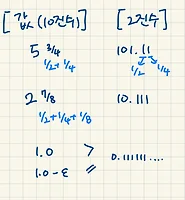 [값 (10진수)] [2진수]
5 3/4 101.11
1/2 + 1/4 1/2 1/4
2 7/8 10.111
1/2 + 1/4 + 1/8
1.0 > 0.111111....
1.0 - ε //